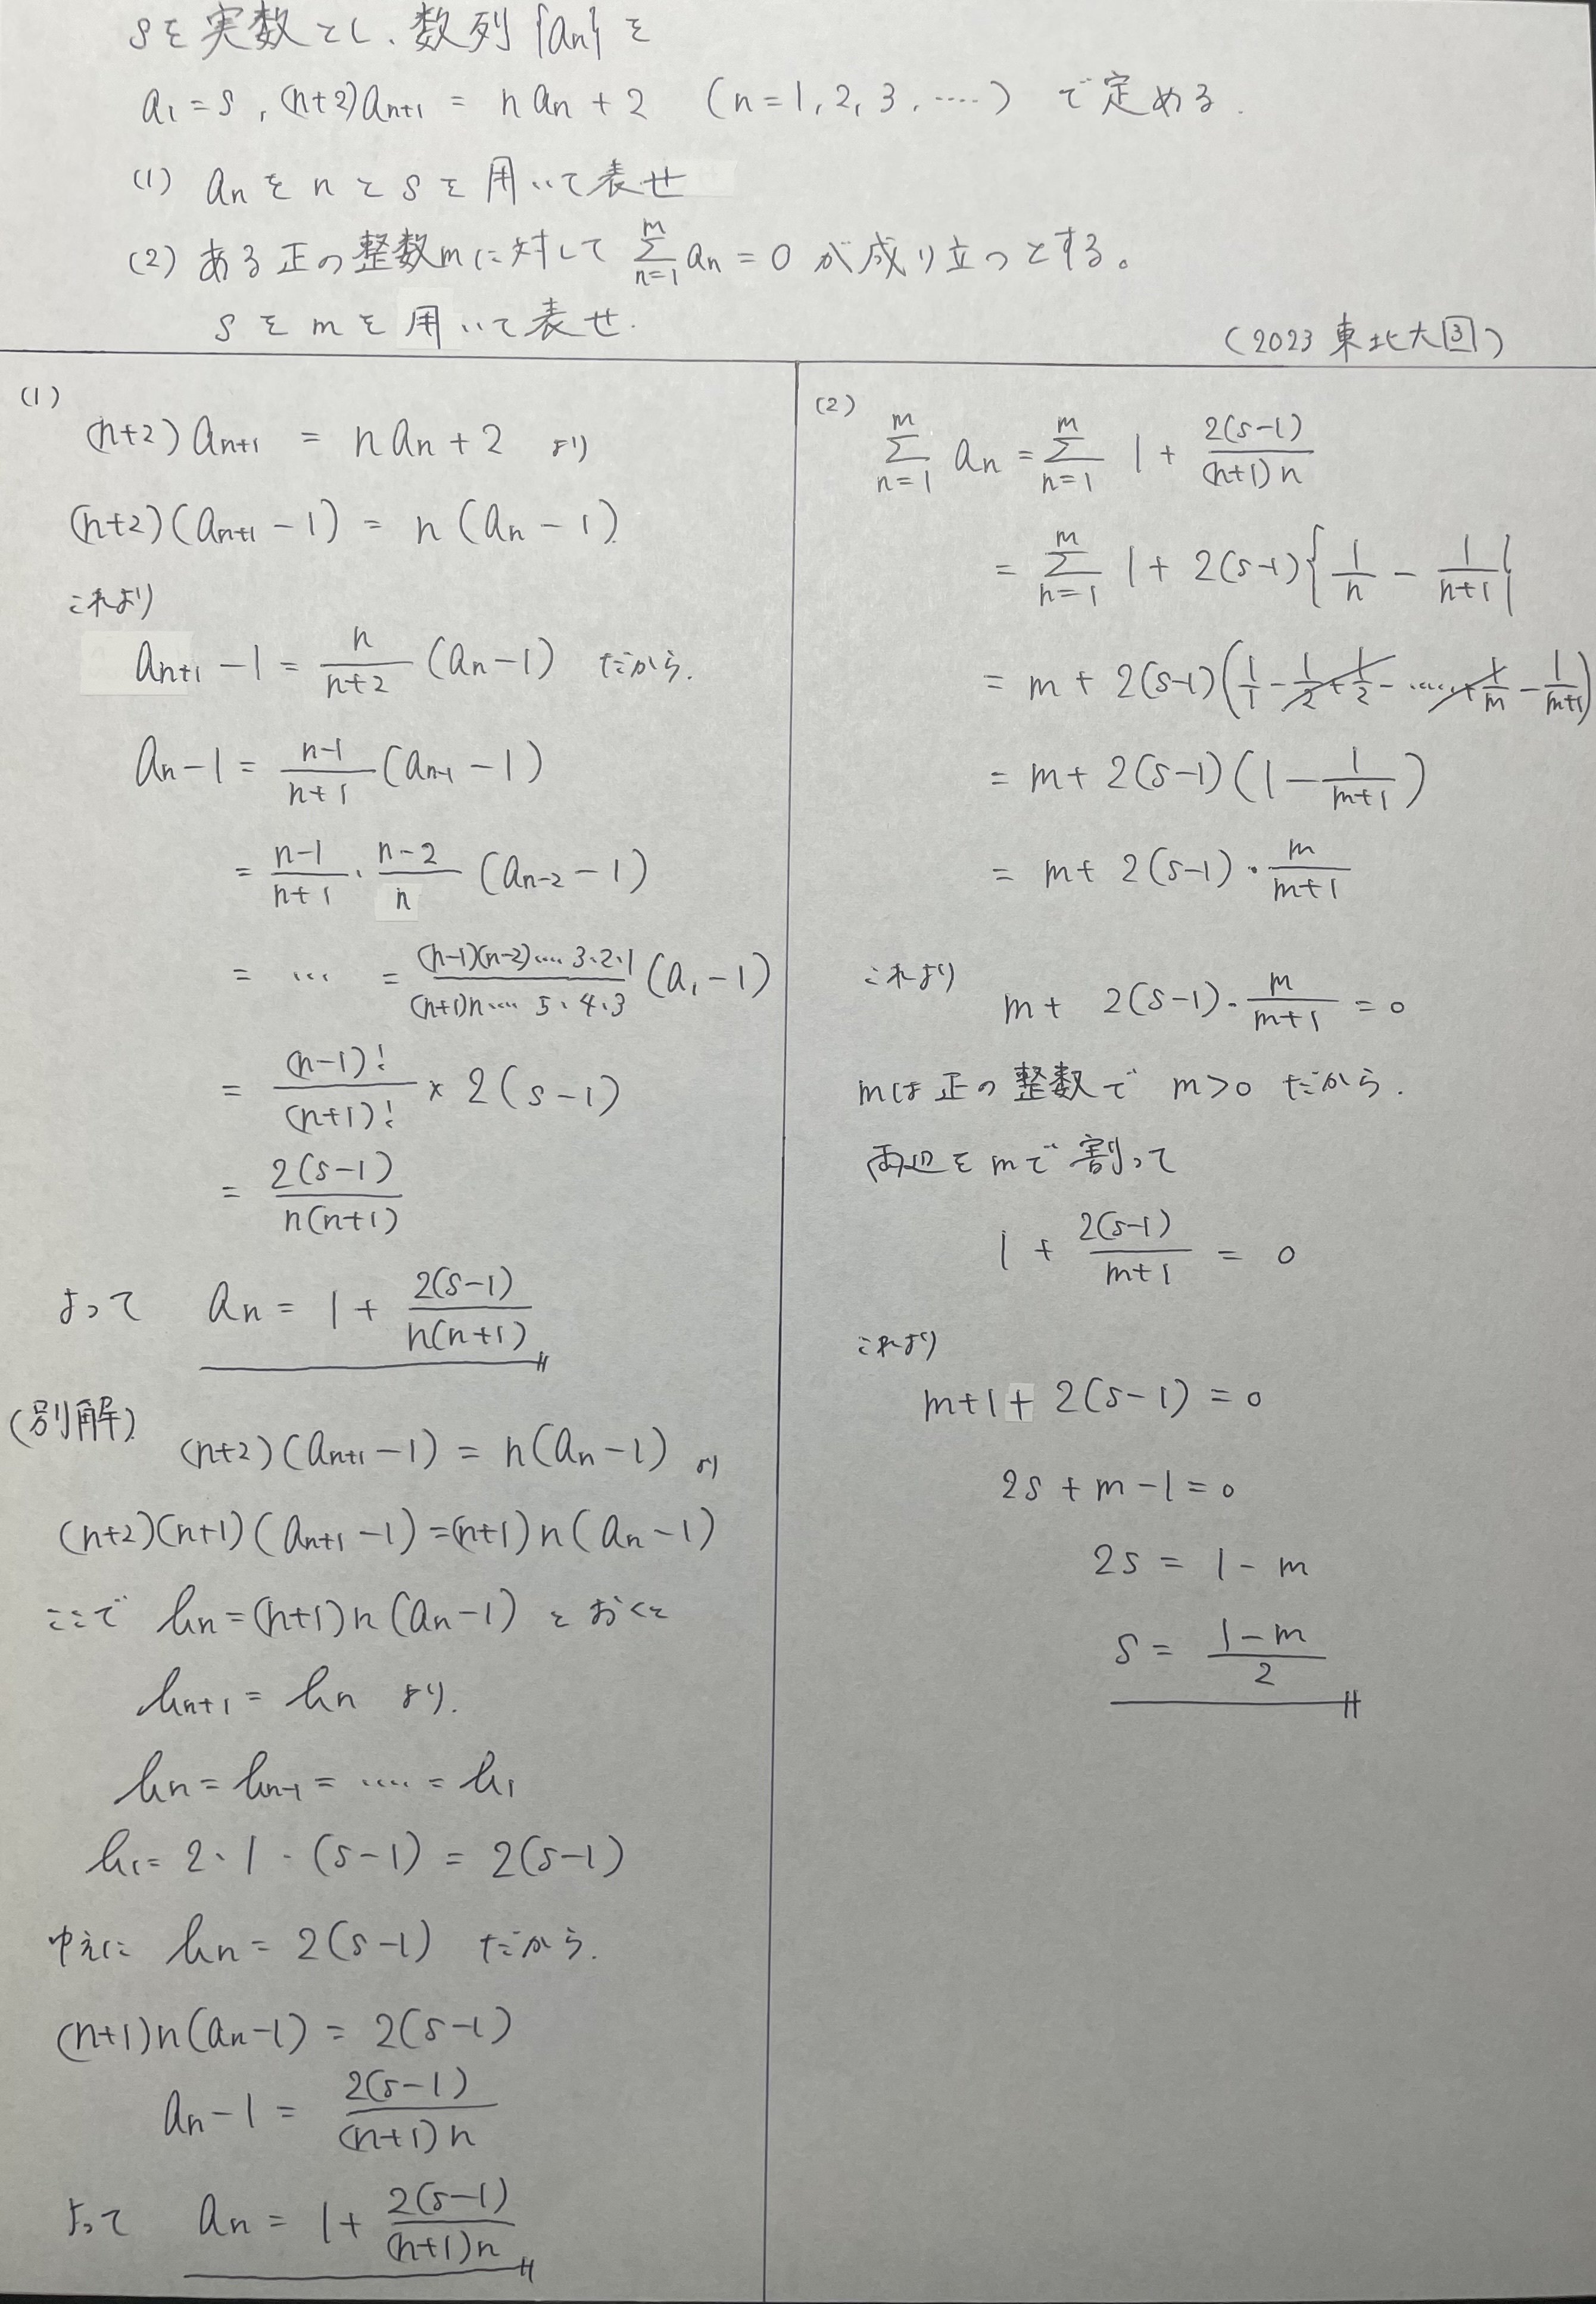 sを実数とし、数列{an}を
a1=s, (n+2)an+1 = nan+2 (n=1,2,3,....) で定める.
(1) anをnとsを用いて表せ
(2) ある正の整数mに対して Σ[n=1→m] an=0 が成り立つとする。
sをmを用いて表せ.
(2023 東北大③)
(1)
(n+2)an+1 = nan+2 より
(n+2)(an+1-1) = n(an-1)
これより
an+1-1 = n/(n+2) (an-1) だから.
an-1 = (n-1)/(n+1) (an-1-1)
= (n-1)/(n+1)・(n-2)/n (an-2-1)
= … = (n-1)(n-2)....3・2・1/(n+1)n....5・4・3 (a1-1)
= (n-1)!/(n+1)! × 2(s-1)
= 2(s-1)/n(n+1)
よって an = 1+ 2(s-1)/n(n+1)
(別解)
(n+2)(an+1-1) = n(an-1) より
(n+2)(n+1)(an+1-1)=(n+1)n(an-1)
ここで bn=(n+1)n(an-1) とおくと
bn+1 = bn より.
bn = bn-1 = .... = b1
b1= 2・1・(s-1) = 2(s-1)
ゆえに bn = 2(s-1) だから.
(n+1)n(an-1) = 2(s-1)
an-1 = 2(s-1)/(n+1)n
よって an = 1+ 2(s-1)/(n+1)n
(2)
Σ[n=1→m] an = Σ[n=1→m] 1+ 2(s-1)/(n+1)n
= Σ[n=1→m] 1+ 2(s-1){1/n - 1/(n+1)}
= m+ 2(s-1)(1/1 - 1/2 + 1/2 - ..... + 1/m - 1/(m+1))
= m+ 2(s-1)(1- 1/(m+1))
= m+ 2(s-1)・m/(m+1)
これより m+ 2(s-1)・m/(m+1) = 0
mは正の整数で m>0 だから.
両辺をmで割って
1+ 2(s-1)/(m+1) = 0
これより
m+1+2(s-1) = 0
2s+m-1=0
2s = 1-m
s = (1-m)/2